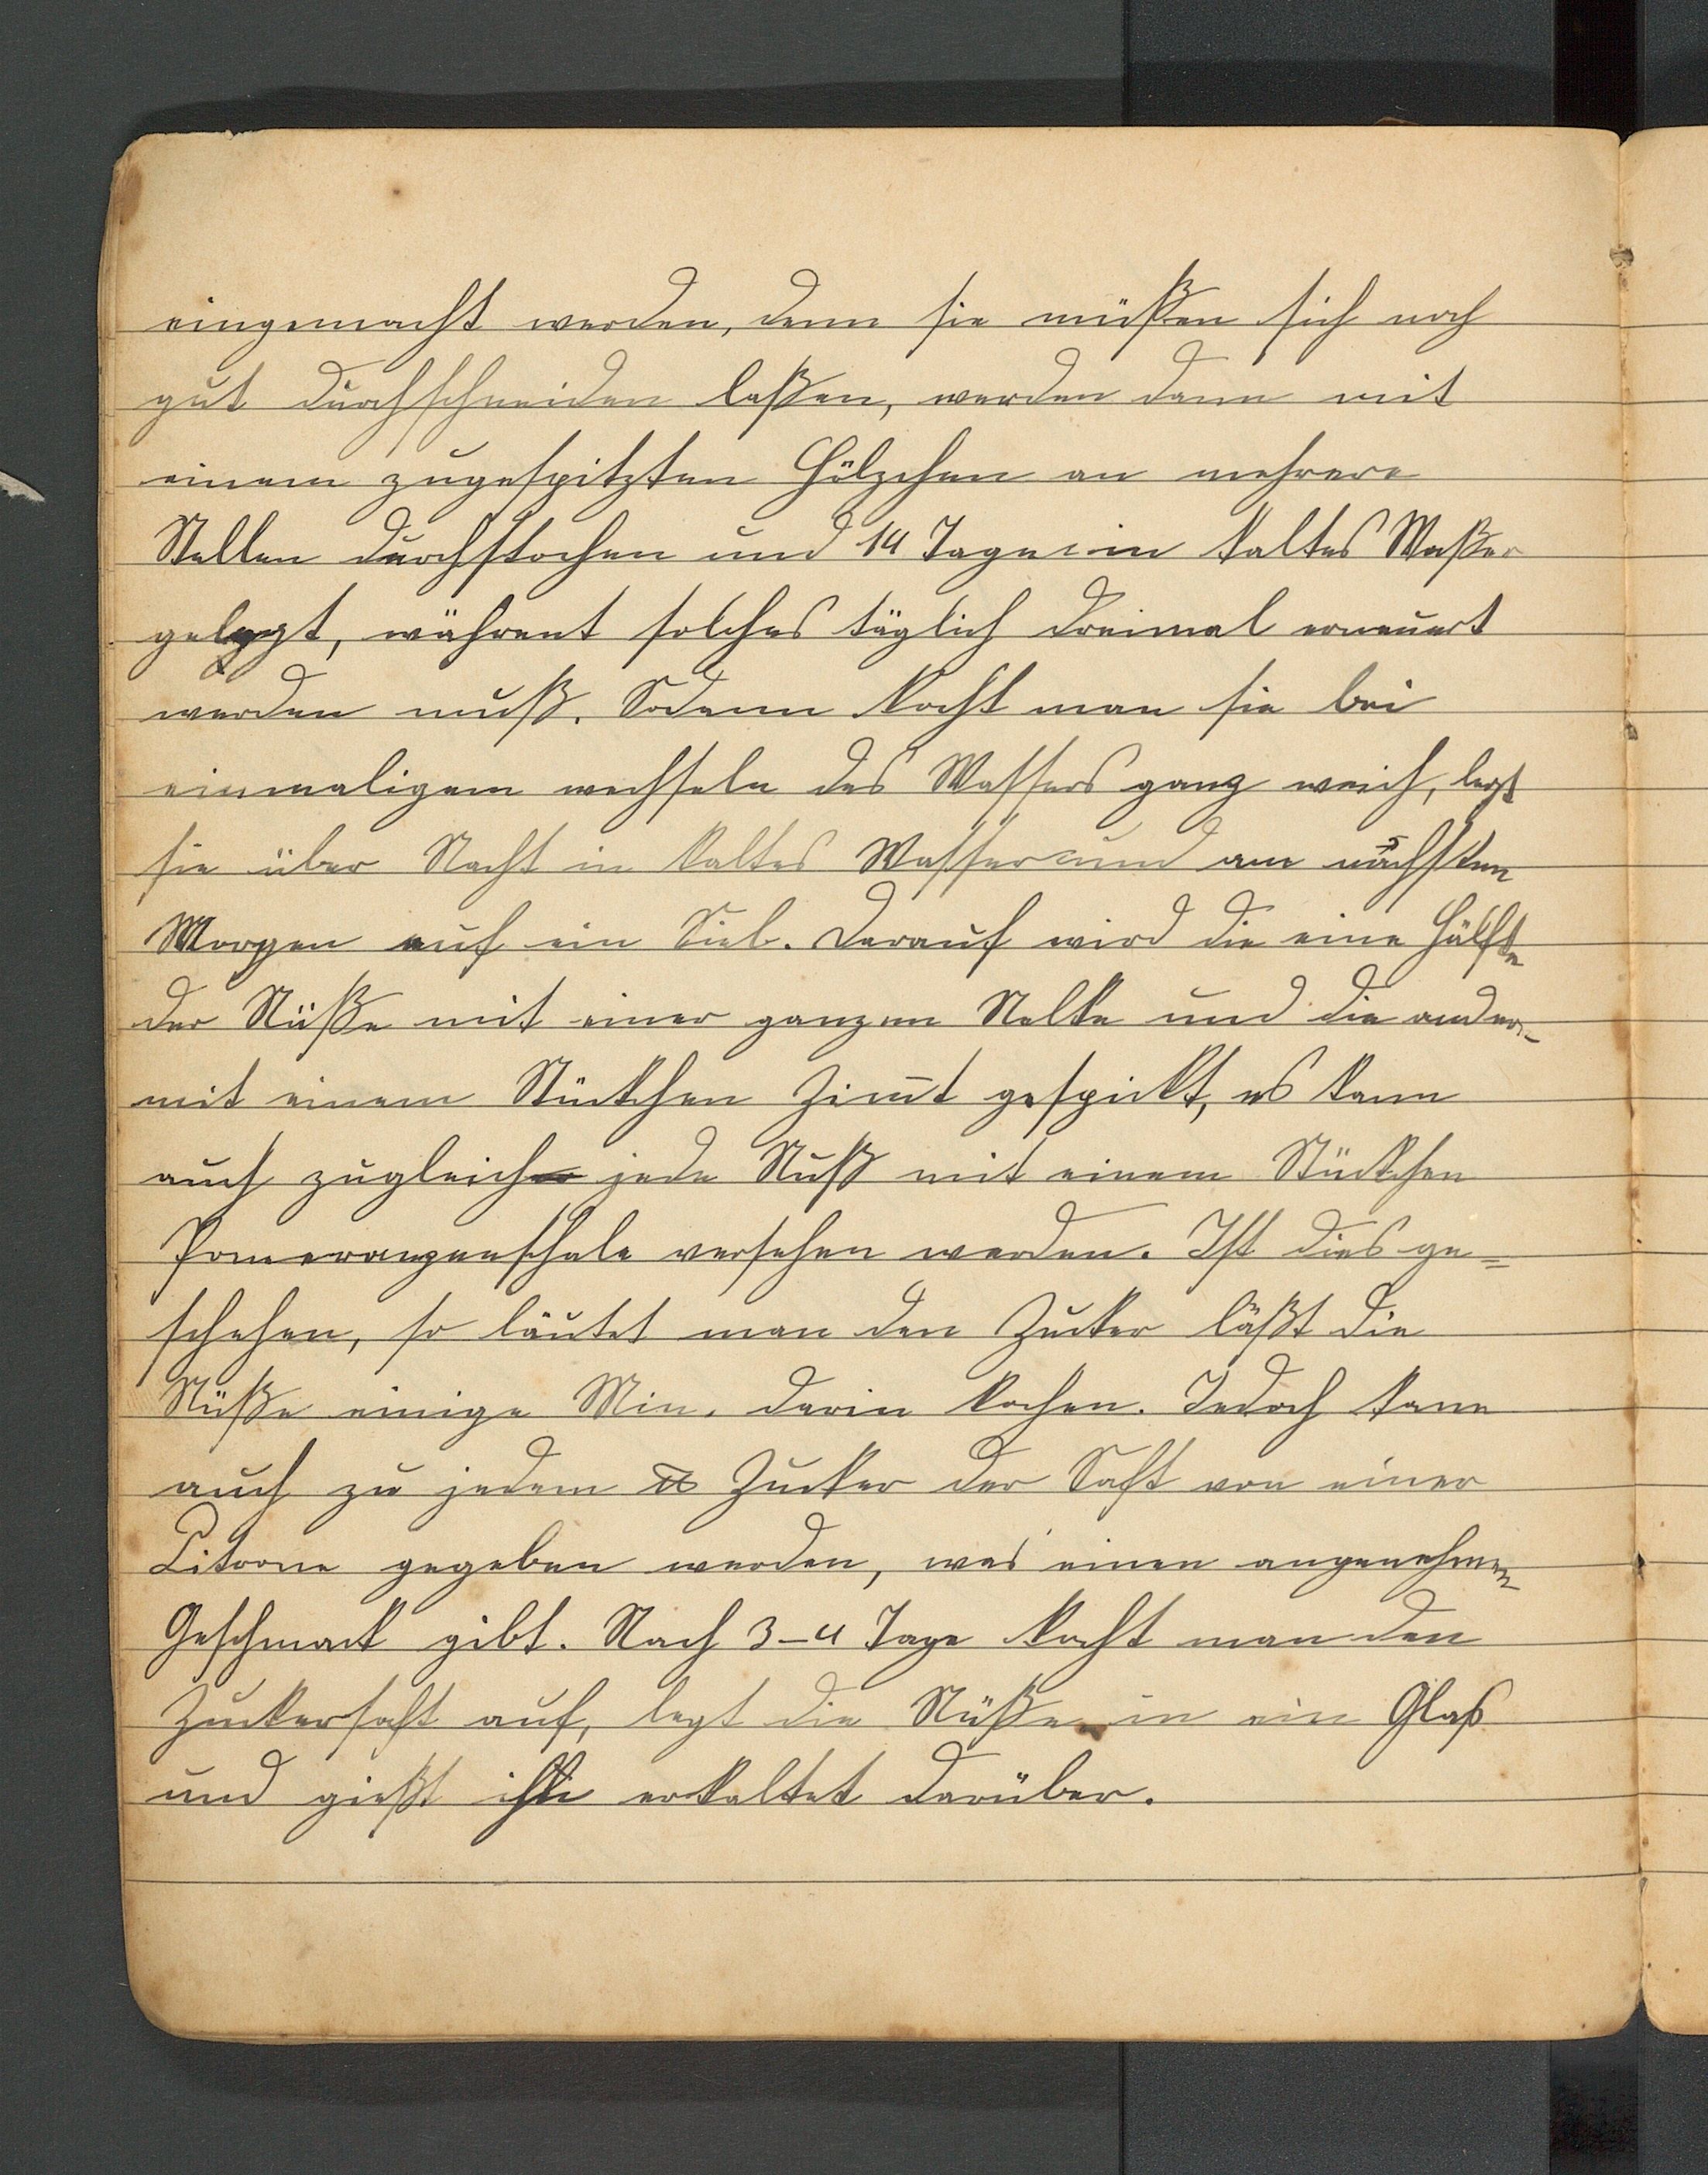 eingemacht werden, denn sie müßen sich noch
gut durchschneiden laßen, werden dann mit
einem zugespitzten Hölzchen an mehrere
Stellen durchstochen und 14 Tage in kaltes Waßer
gelegt, währent solches täglich dreimal erneuert
werden muß. Sodann kocht man sie bei
einmaligem wechseln des Wassers ganz weich, legt
sie über Nacht in kaltes Wasser und am nächsten
Morgen auf ein Sieb. Darauf wird die eine Hälfte
der Nüße mit einer ganzen Nelke und die andere
mit einem Stückchen Zimt gespickt, es kann
auch zugleich jede Nuß mit einem Stückchen
Pomeranzenschale versehen werden. Ist dies ge=
schehen, so läutet man den Zucker läßt die
Nüße einige Min. darin kochen. Jedoch kann
auch zu jedem ℔ Zucker der Saft von einer
Citrone gegeben werden, was einen angenehmen
Geschmack gibt. Nach 3-4 Tage kocht man den
Zuckersaft auf, legt die Nüße in ein Glas
und gießt ihn erkaltet darüber.